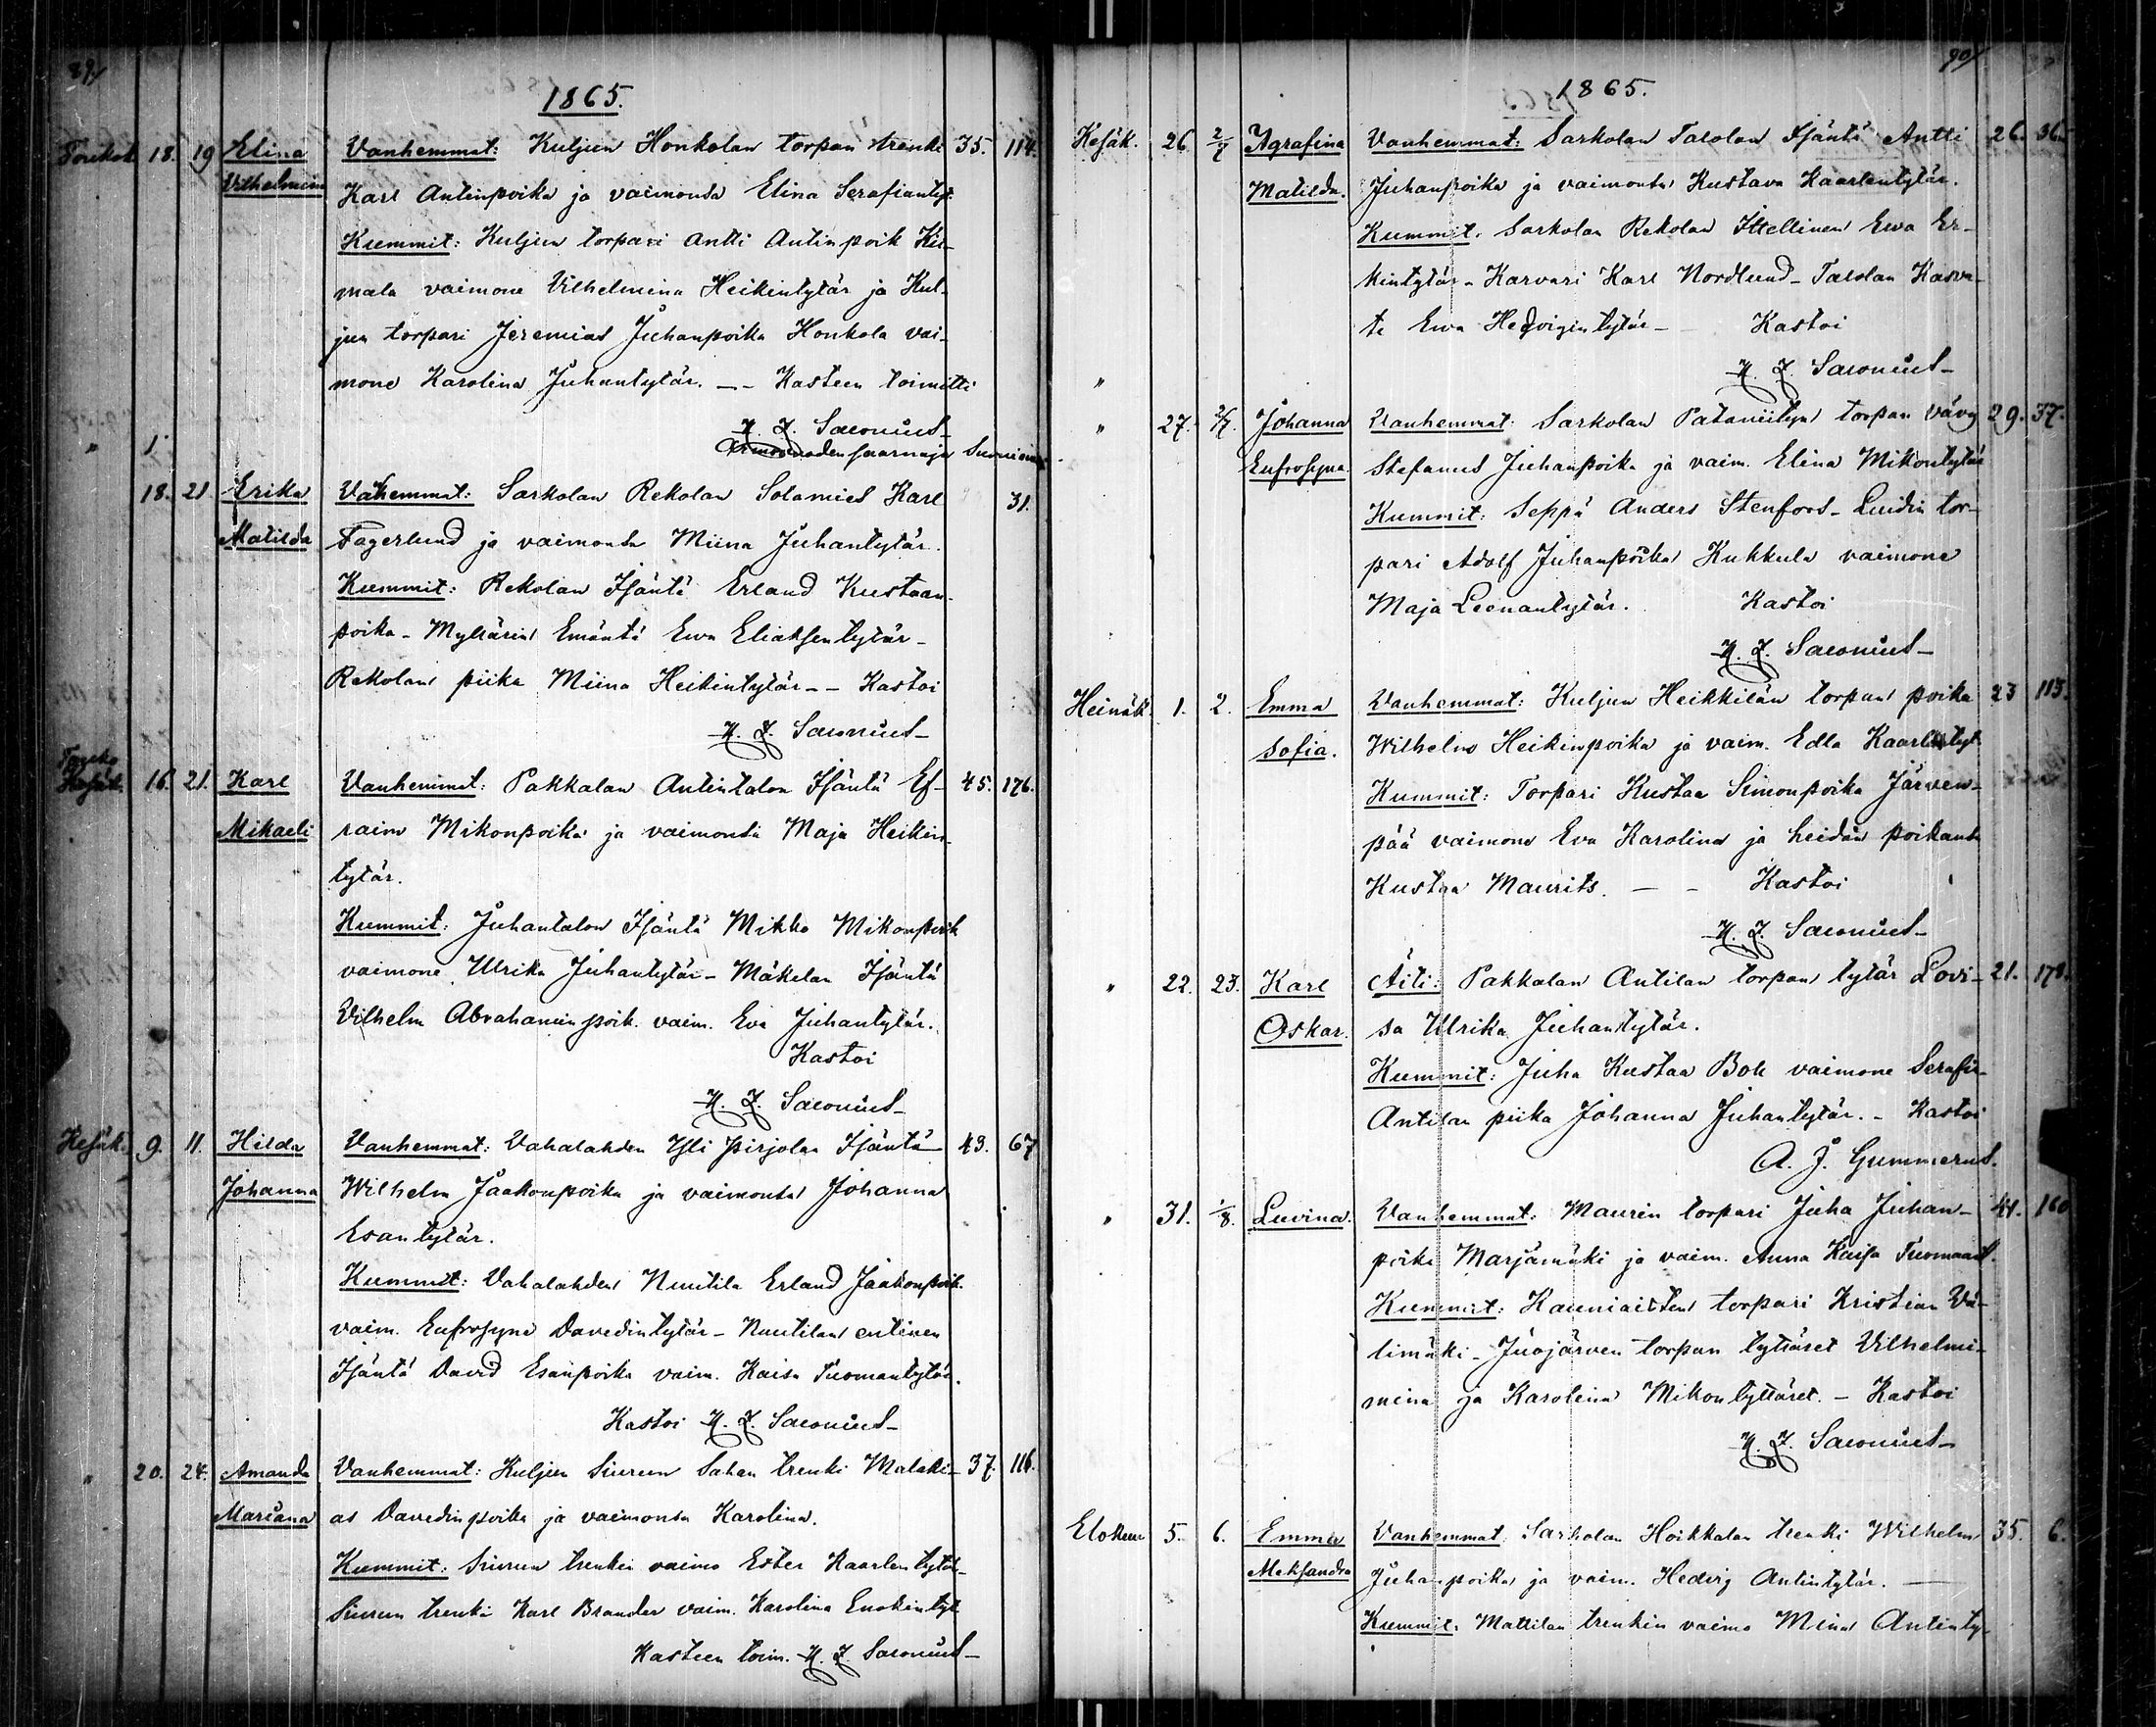 89/
1865.
Toukok. 18. 19 Elina Vanhemmat: Kuljun Honkolan torpan trenki 35. 114.
Vilhelmiin Karl Antinpoika ja vaimonsa Elina Serafiantyt.
Kummit: Kuljun torpari Antti Antinpoik
mala vaimone Vilhelmina Heikintytär ja Kul-
jun torpari Jeremias Juhanpoika Honkola vai-
mone Karolina Juhantytär. -- Kasteen toimitti
H. J. Saxonius
" 1
saarnaja
18. 21. Erika Vahemmat: Sarkolan Rekolan Sotamies Karl 31.
Matilda Fagerlund ja vaimonsa Miina Juhantytär.
Kummit: Rekolan Isäntä Erland Kustaan-
poika - Myllärin Emäntä Ewa Eliaksentytär -
Rekolan piika Miina Heikintytär -- Kastoi
H. J. Saxonius
Touko
Kesäk. 16. 21. Karl Vanhemmat: Pakkalan Antintalon Isäntä Ef- 45. 176.
Mikaeli raim Mikonpoika ja vaimonsa Maja Heikin-
tytär.
Kummit: Juhantalon Isäntä Mikko Mikonpoik
vaimone Ulrika Juhantytär - Mäkelan Isäntä
Vilhelm Abrahaminpoik. vaim. Eva Juhantytär.
Kastoi
H. J. Saxonius
Kesäk. 9. 11. Hilda Vanhemmat: Vahalahden Yli Pirjolan Isäntä 49. 67
Johanna Wilhelm Jaakonpoika ja vaimonsa Johanna
Esantytär.
Kummit: Vahalahden Nuutila Erland Jaakonpoik.
vaim. Eufrosyne Davedintytär - Nuutilan entinen
Isäntä David Esanpoika vaim. Kaisa Tuomantytär.
Kastoi H. J. Saxonius
" 20. 24. Amanda Vanhemmat: Kuljun Siurun Sahan trenki Malaki- 37. 116.
Mariana as Davedinpoika ja vaimonsa Karolina.
Kummit: Siurun trenkin vaimo Ester Kaarlentytär-
Siurun trenki Karl Brander vaim. Karolina Enokintyt
Kasteen toim. H. J. Saxonius
90/
1865.
Kesäk. 26 2/7 Agrafina Vanhemmat: Sarkolan Talolan Isäntä Antti 26. 36.
Matilda. Juhanpoika ja vaimonsa Kustava Kaarlentytär.
Kummit. Sarkolan Rekolan Itellinen Ewa Er-
kintytär - Karvari Karl Nordlund - Talolan Kasva-
te Ewa Hedviigintytär - Kastoi
H. J. Saxonius
"
" 27. 2/7. Johanna Vanhemmat: Sarkolan Pataniityn torpan vävy 29. 37.
Eufrosyna. Stefanus Juhanpoika ja vaim. Elina Mikontytär
Kummit: Seppä Anders Stenfors - Luidin tor-
pari Adolf Juhanpoika Kukkula vaimone
Maja Leenantytär. Kastoi
H. J. Saxonius
Heinäk. 1. 2. Emma Vanhemmat: Kuljun Heikkilän torpan poika 23 113.
Sofia. Wilhelm Heikinpoika ja vaim. Edla Kaarlentyt
Kummit: Torpari Kustaa Simonpoika Järwen-
pää vaimone Eva Karolina ja heidän poikansa
Kustaa Maurits. - - Kastoi
H. J. Saxonius
" 22. 23. Karl Äiti: Pakkalan Antilan torpan tytär Lovi- 21. 178.
Oskar. sa Ulrika Juhantytär.
Kummit: Juha Kustaa Bok vaimone Serafin-
Antilan piika Johanna Juhantytär. - Kastoi
A. J. Gummerus.
" 31. 1/8. Luvina. Vanhemmat: Maurin torpari Juha Juhan- 41. 160
poika Marjamäki ja vaim. Anna Kaisa Tuomaant.
Kummit: Kauniaisten torpari Kristian Vä-
limäki - Juojärven torpan tyttäret Vilhelmi-
mina ja Karolina Mikontyttäret. - Kastoi
H. J. Saxonius
Elokuu 5. 6. Emma Vanhemmat: Sarkolan Hoikkalan trenki Wilhelm 35. 6.
Aleksandra Juhanpoika ja vaim. Hedvig Antintytär.
Kummit. Mattilan trenkin vaimo Mina Antinty-